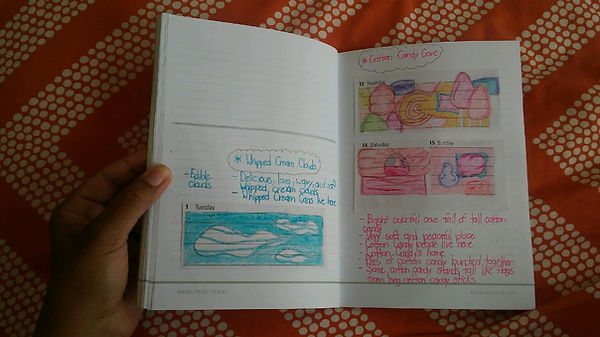 * Whipped Cream Clouds
- Edible
clouds
- Delicious, long, wavy, and soft
whipped cream clouds
- Whipped Cream Cans live here
1 Tuesday
* Cotton Candy Cove
12 Thursday
14 Saturday
15 Sunday
- Bright colorful cove full of tall cotton
candy
- Very soft and peaceful place
- Cotton Candy people live here
- Cotton Candy's home
- Piles of cotton candy bunched together
- Some cotton candy stands tall like flags
from long cotton candy sticks